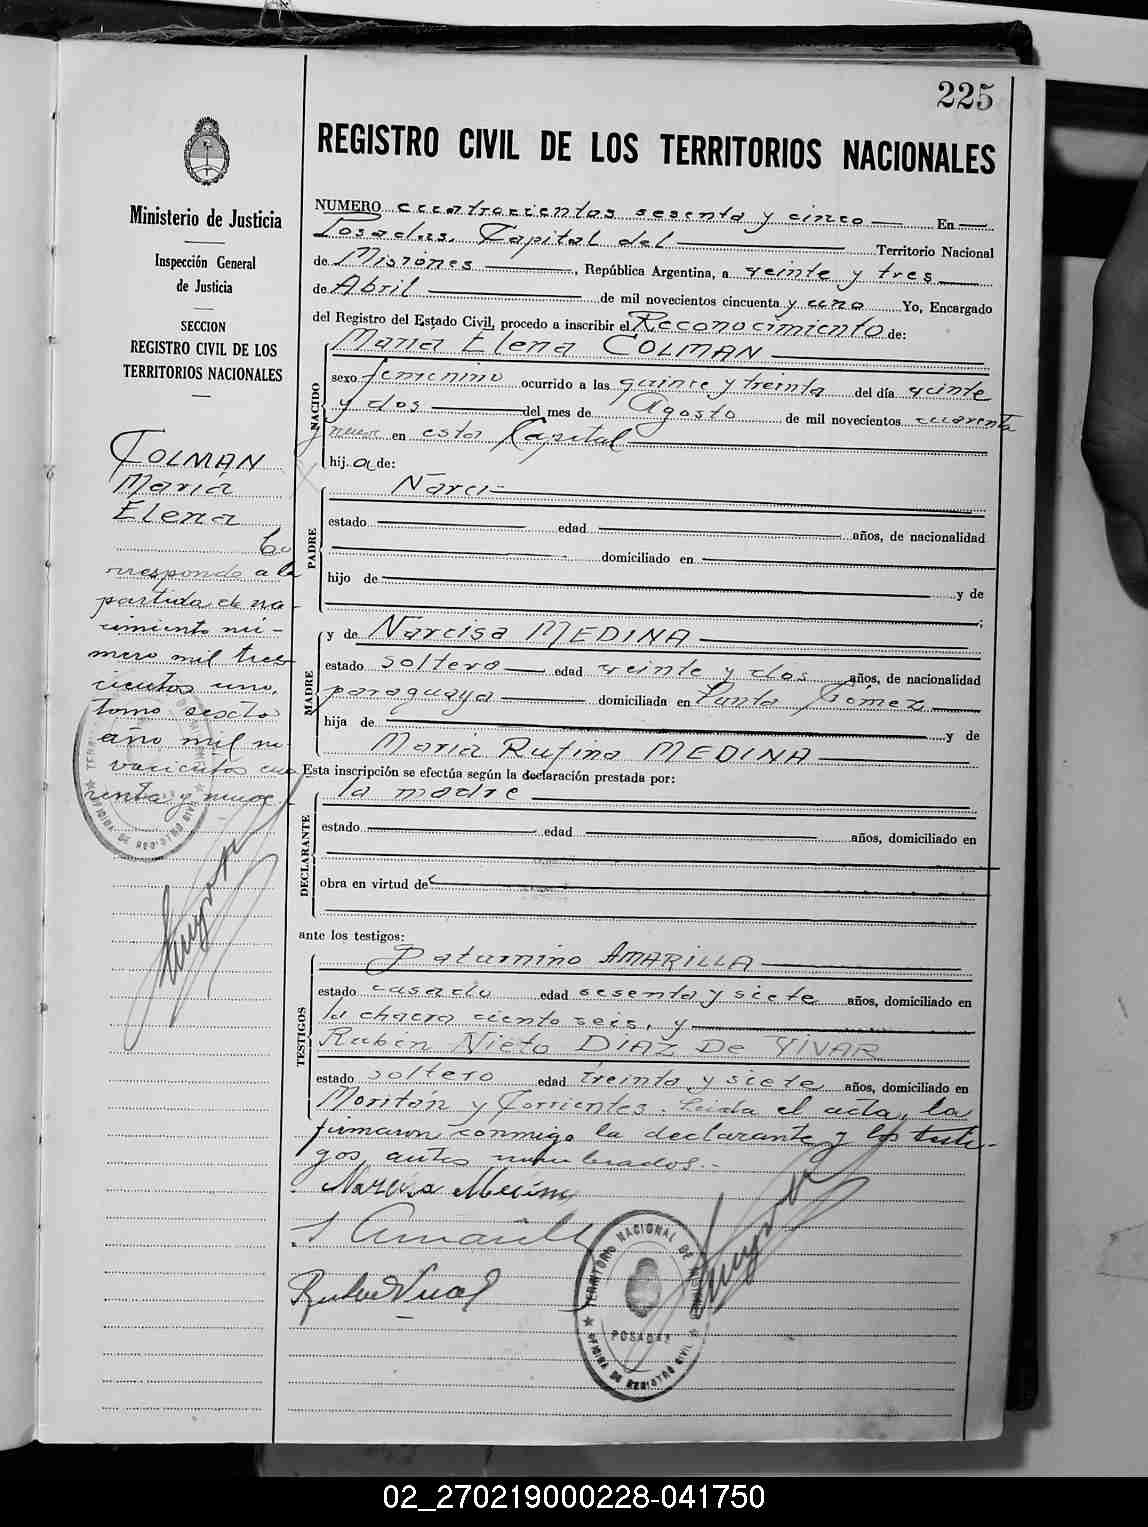 225
REGISTRO CIVIL DE LOS TERRITORIOS NACIONALES
Ministerio de Justicia
Inspección General
de Justicia
SECCION
REGISTRO CIVIL DE LOS
TERRITORIOS NACIONALES
COLMAN
María
Elena
Co
rresponde a la
partida de na-
cimiento nú-
mero mil tres
cientos uno,
tomo sexto
año mil no
vecientos cua
renta y nueve
NUMERO cuatrocientos sesenta y cinco En
Posadas, Capital del Territorio Nacional
de Misiones, República Argentina, a veinte y tres
de Abril de mil novecientos cincuenta y uno Yo, Encargado
del Registro del Estado Civil, procedo a inscribir el Reconocimiento de:
NACIDO
Maria Elena COLMAN
sexo femenino ocurrido a las quince y treinta del día veinte
y dos del mes de Agosto de mil novecientos cuarenta
y nueve en esta Capital
hija de:
PADRE
Narci-
estado edad años, de nacionalidad
domiciliado en
hijo de y de
;
MADRE
y de Narcisa MEDINA
estado soltera edad veinte y dos años, de nacionalidad
paraguaya domiciliada en Punta Gómez
hija de y de
María Rufina MEDINA
Esta inscripción se efectúa según la declaración prestada por:
DECLARANTE
la madre
estado edad años, domiciliado en
obra en virtud de
ante los testigos:
TESTIGOS
Saturnino AMARILLA
estado casado edad sesenta y siete años, domiciliado en
la chacra ciento seis, y
Rubén Nieto DIAZ DE VIVAR
estado soltero edad treinta y siete años, domiciliado en
Moritán y Corrientes. Leida el acta, la
firmaron conmigo la declarante y los testi-
gos antes nombrados.-
Narcisa Medina
S Amarilla
TERRITORIO NACIONAL DE MISIONES
POSADAS
OFICINA DE REGISTRO CIVIL
02_270219000228-041750